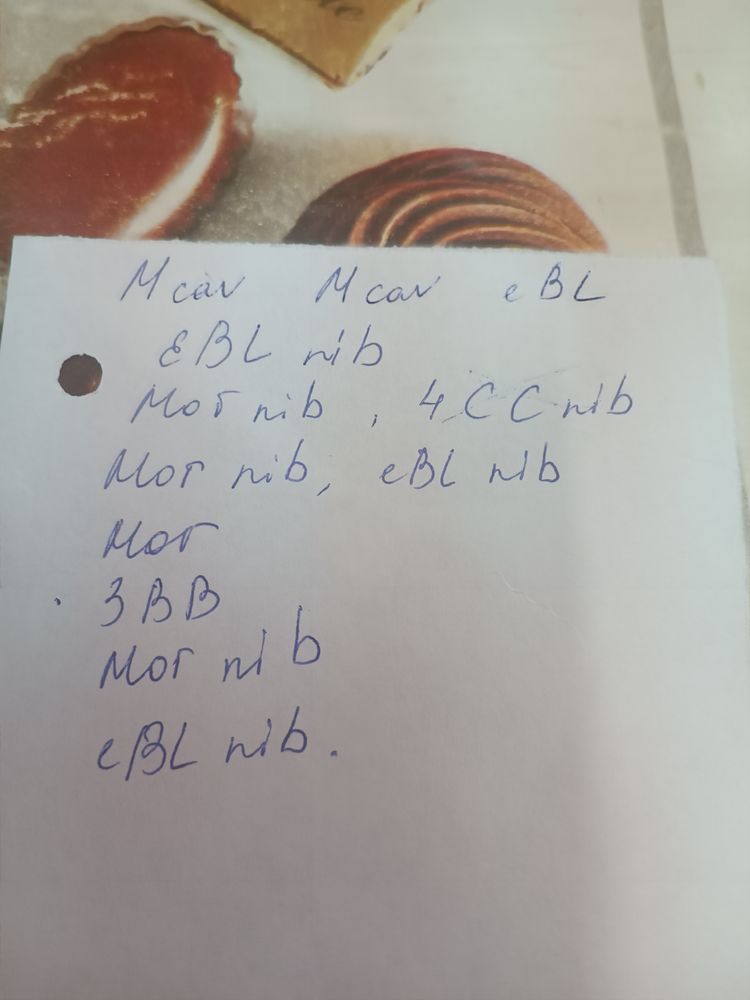 Mcav Mcav eBL
EBL nib
Mor nib, 4CC nib
Mor nib, eBL nib
Mor
3BB
Mor nib
eBL nib.